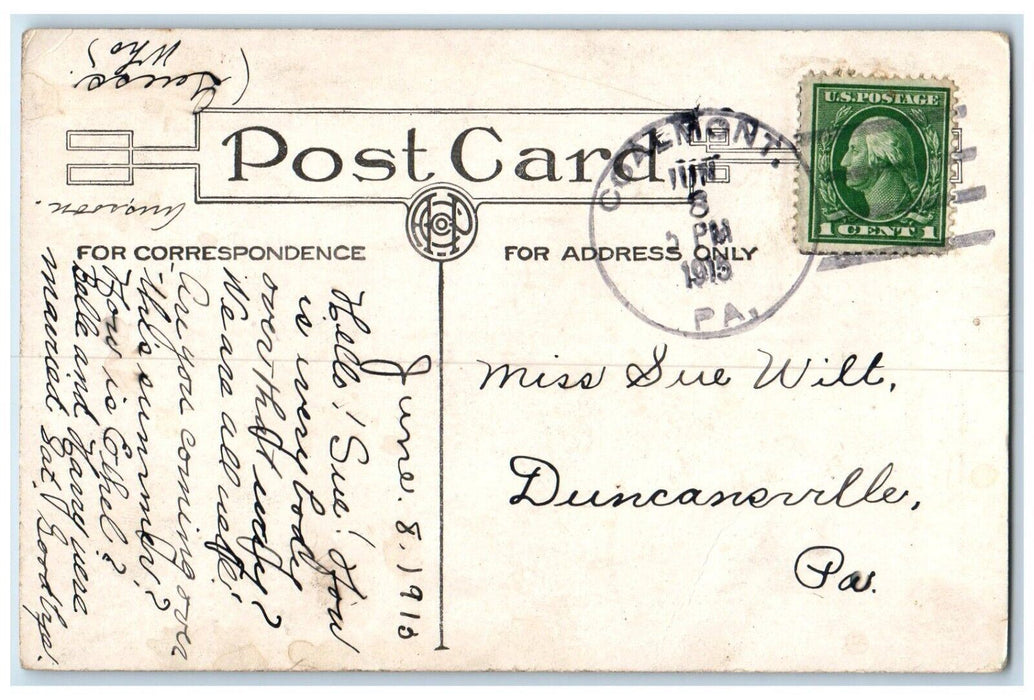 (Guess
Who)
Post Card
FOR CORRESPONDENCE
FOR ADDRESS ONLY
U.S. POSTAGE
1 CENT 1
JUN
8
PM
PA.
June. 8, 191
Hello! Sue! How
is every body
over that way?
We are all well.
Are you coming over
this summer?
How is Ethel?
Belle and Harry were
married Sat. Goodbye.
Miss Sue Wilt,
Duncansville,
Pa.